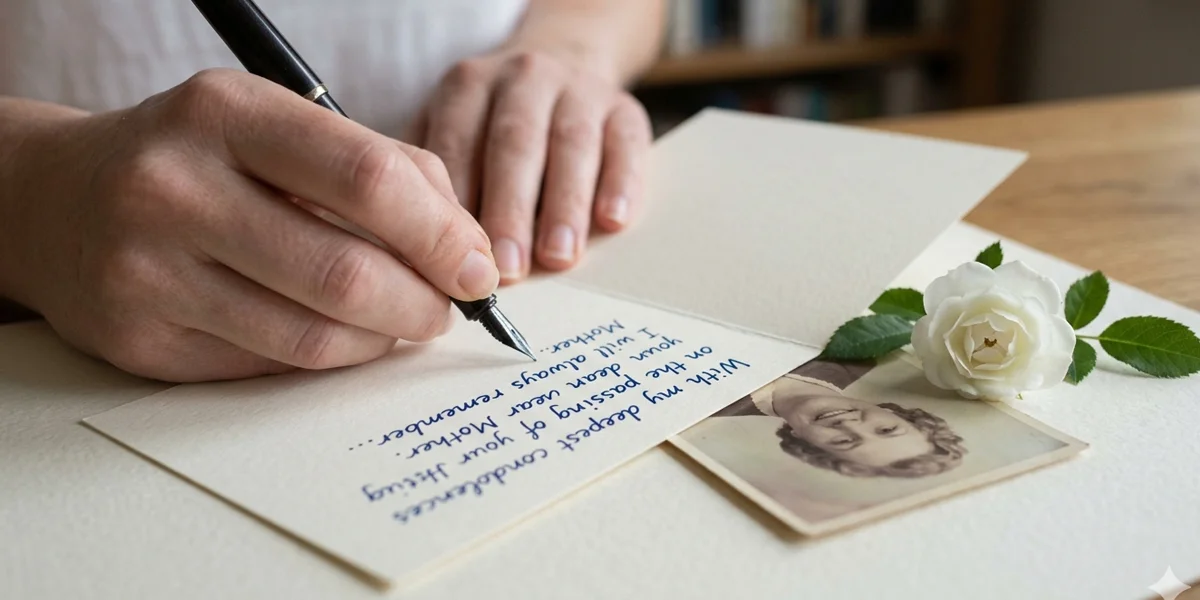 With my deepest condolences
on the passing of your
your dean uear Mother.
I will always remember...
Mother..